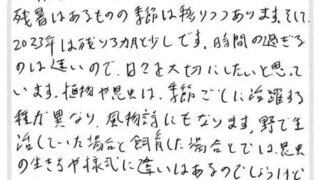 残暑はあるものの季節は移りつつあります。そして、
2023年は残り3カ月と少しです。時間の過ぎる
のは速いので、日々を大切にしたいと思って
います。植物や昆虫は、季節ごとに活躍する
種が異なり、風物詩にもなります。野で生
活していた場合と飼育した場合とでは、昆虫
の生き方や様式に違いはあるのでしょうけど